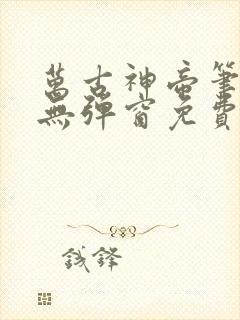 萬古神帝筆
無彈窗免費
錢鋒